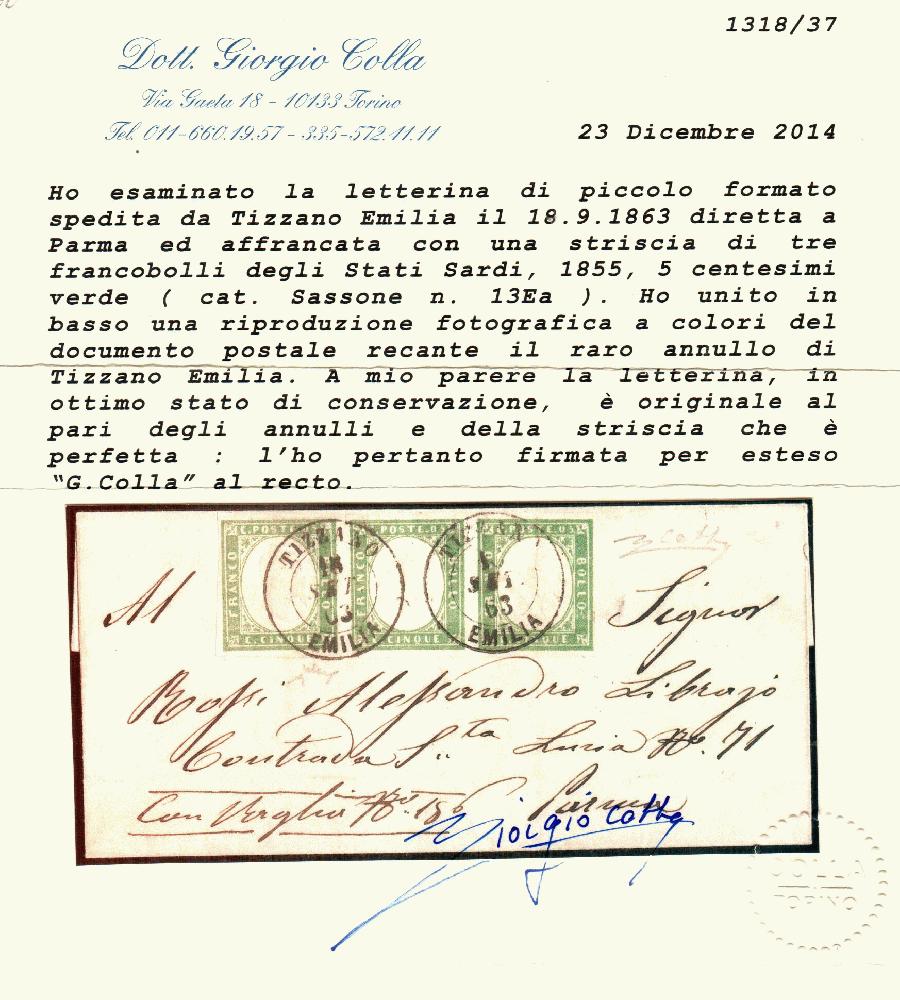 1318/37
Dott. Giorgio Colla
Via Gaeta 18 - 10133 Torino
Tel. 011-660.19.57 - 335-572.11.11
23 Dicembre 2014
Ho esaminato la letterina di piccolo formato
spedita da Tizzano Emilia il 18.9.1863 diretta a
Parma ed affrancata con una striscia di tre
francobolli degli Stati Sardi, 1855, 5 centesimi
verde ( cat. Sassone n. 13Ea ). Ho unito in
basso una riproduzione fotografica a colori del
documento postale recante il raro annullo di
Tizzano Emilia. A mio parere la letterina, in
ottimo stato di conservazione, è originale al
pari degli annulli e della striscia che è
perfetta : l'ho pertanto firmata per esteso
"G.Colla" al recto.
C.POSTE
POSTE
FRANCO
BOLLO
C.CINQUE
CINQUE
TIZZANO
18
SET
63
EMILIA
SET
63
EMILIA
Al Signor
Rossi Alessandro Librajo
Contrada S.ta Lucia N°. 71
Parma
Con Veglia
Giorgio Colla
COLLA
TORINO